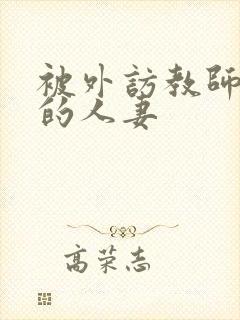 被外訪教師
的人妻
高荣志